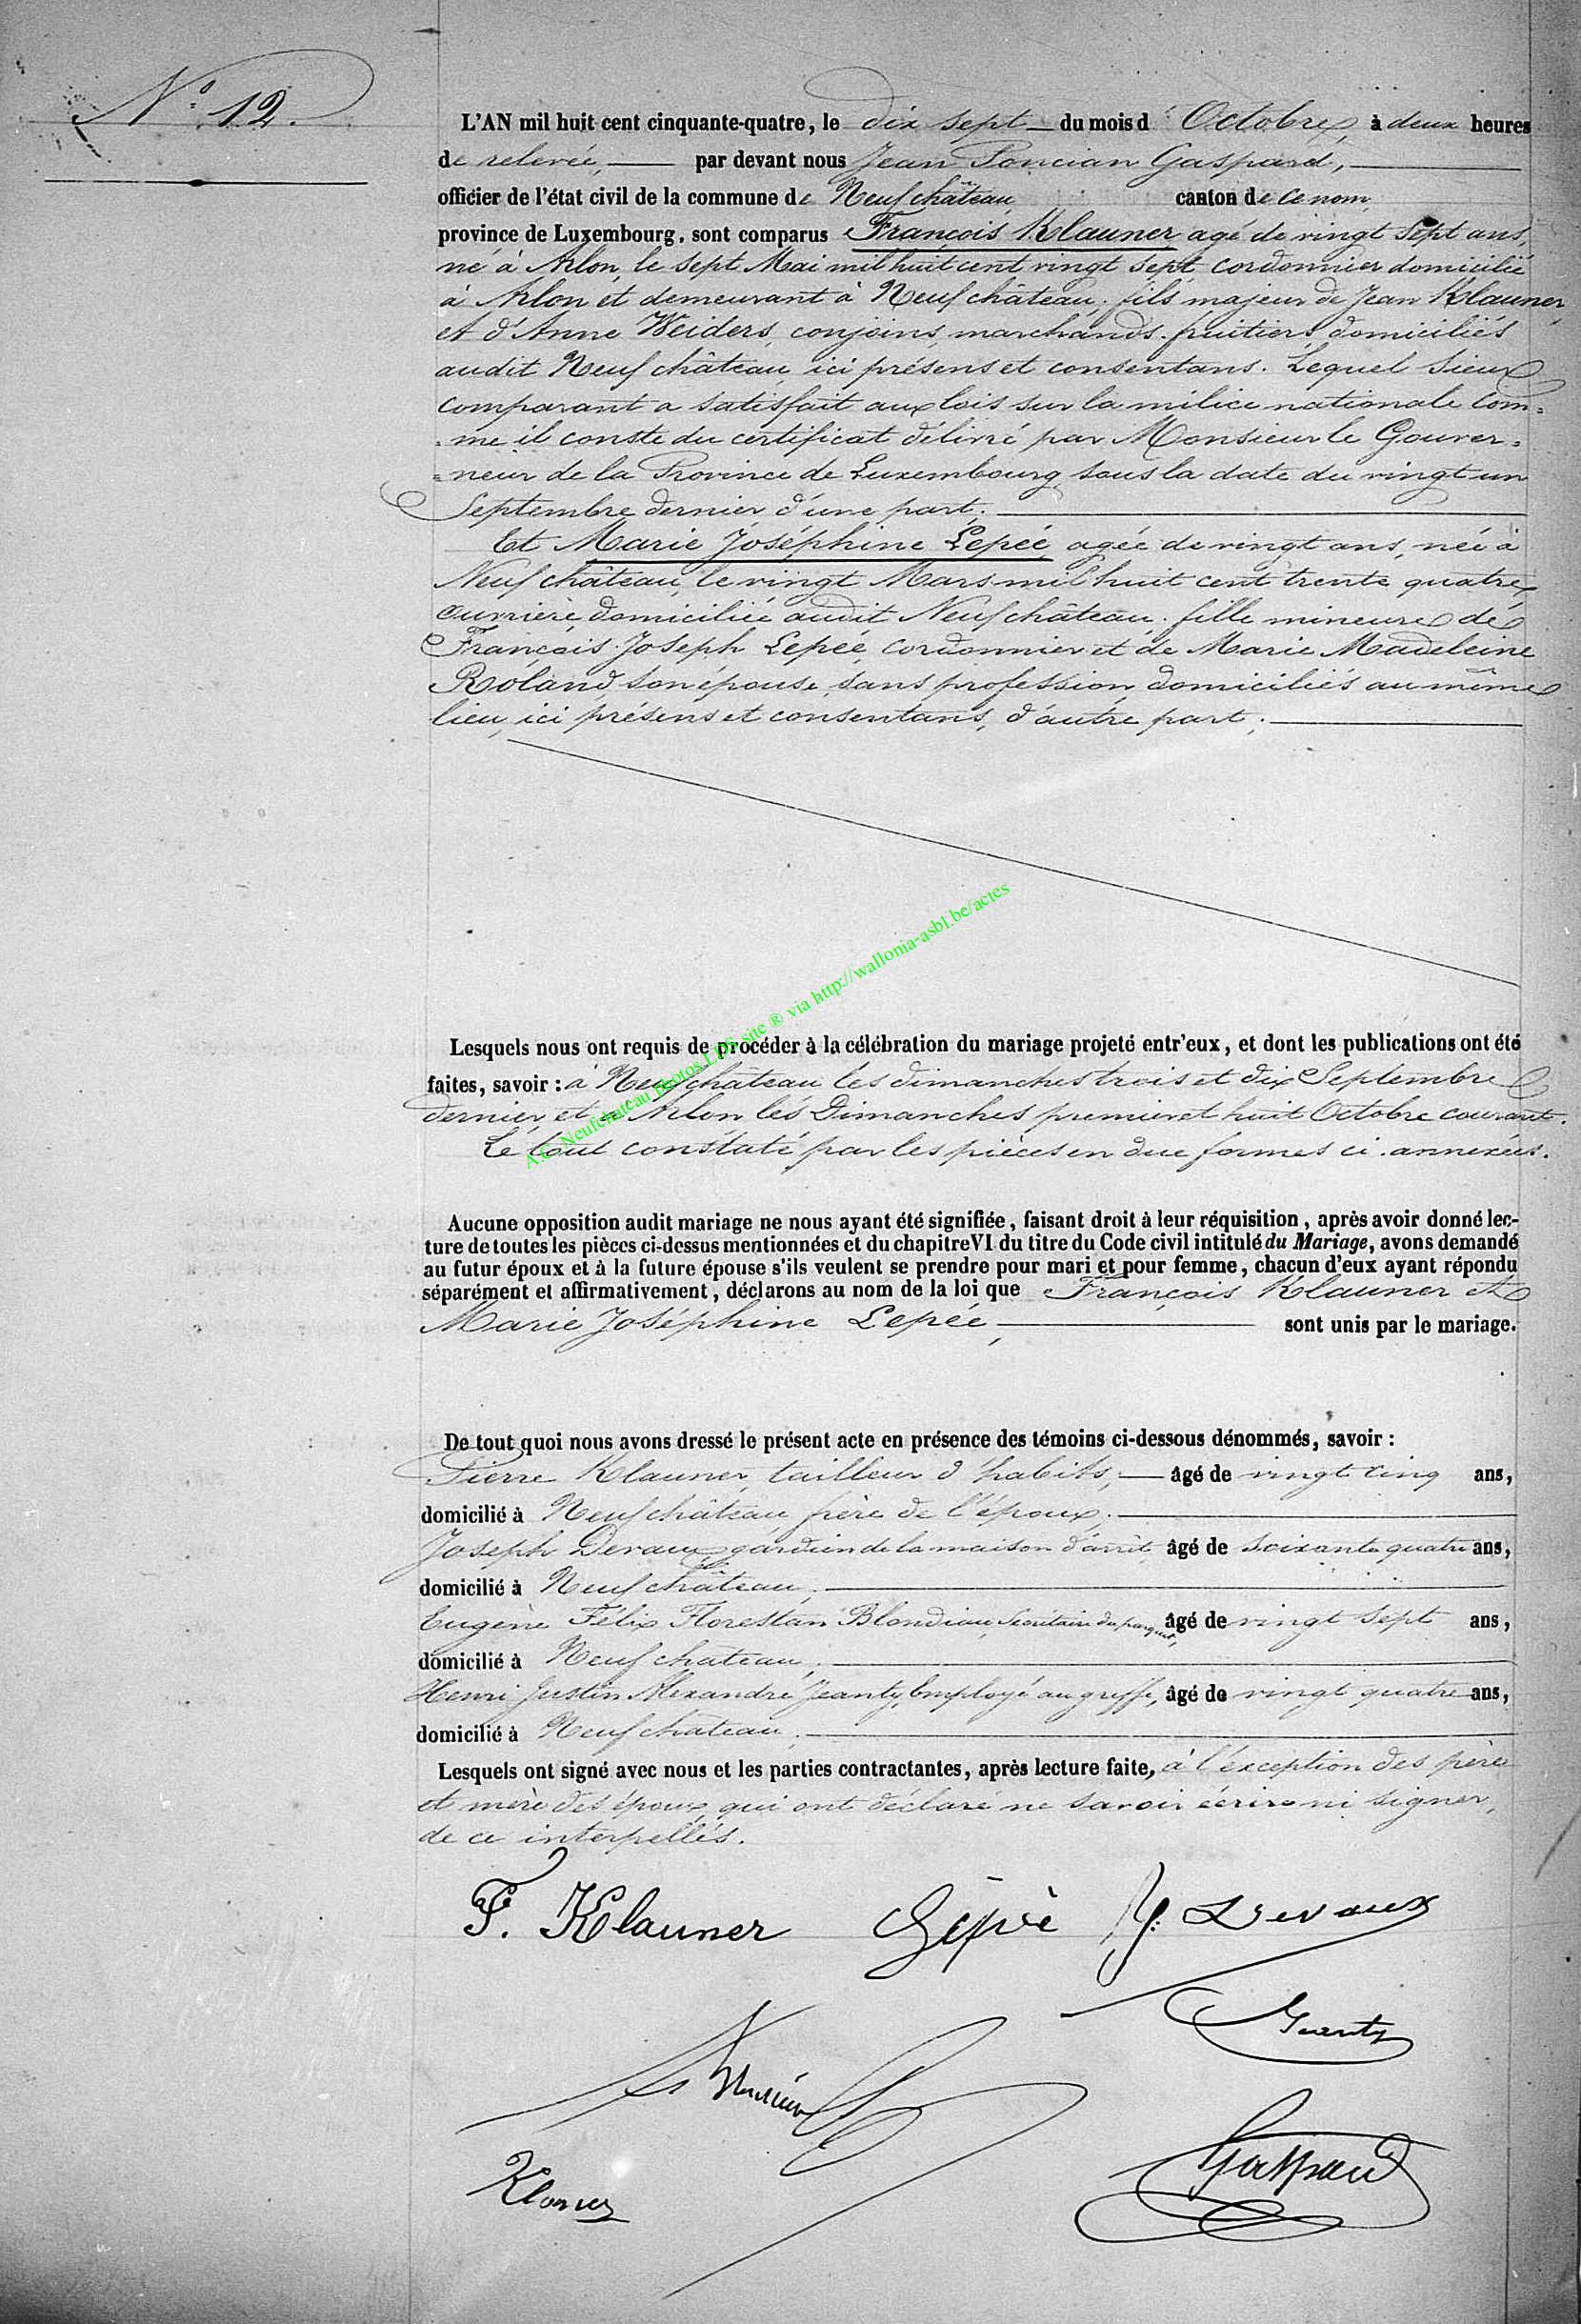 N° 12.
L'AN mil huit cent cinquante-quatre, le dix sept du mois d' Octobre, à deux heures
de relevée, par devant nous Jean Poncian Gaspard,
officier de l'état civil de la commune de Neufchâteau canton de ce nom
province de Luxembourg, sont comparus François Klauner agé de vingt sept ans,
né à Arlon, le sept Mai mil huit cent vingt sept, cordonnier domicilié
à Arlon et demeurant à Neufchâteau, fils majeur de Jean Klauner
et d'Anne Weiders, conjoins, marchands-fruitiers domiciliés
audit Neufchâteau ici présens et consentans. Lequel Sieur
comparant a satisfait aux lois sur la milice nationale com=
=me il conste du certificat délivré par Monsieur le Gouver=
=neur de la Province de Luxembourg sous la date du vingt un
Septembre dernier d'une part;
Et Marie Joséphine Lepée agée de vingt ans, née à
Neufchâteau, le vingt Mars mil huit cent trente quatre
ouvrière domiciliée audit Neufchâteau, fille mineure de
François-Joseph Lepée, cordonnier et de Marie Madeleine
Roland son épouse, sans profession domiciliés au même
lieu, ici présens et consentans, d'autre part;
Lesquels nous ont requis de procéder à la célébration du mariage projeté entr'eux, et dont les publications ont été
faites, savoir : à Neufchâteau les dimanches trois et dix Septembre
dernier, et à Arlon les Dimanches premier et huit Octobre courant.
Le tout constaté par les pièces en due formes ci-annexées.
A.C. Neufchateau photos LDS site ® via http://wallonia-asbl.be/actes
Aucune opposition audit mariage ne nous ayant été signifiée, faisant droit à leur réquisition, après avoir donné lec-
ture de toutes les pièces ci-dessus mentionnées et du chapitre VI du titre du Code civil intitulé du Mariage, avons demandé
au futur époux et à la future épouse s'ils veulent se prendre pour mari et pour femme, chacun d'eux ayant répondu
séparément et affirmativement, déclarons au nom de la loi que François Klauner et
Marie Joséphine Lepée, sont unis par le mariage.
De tout quoi nous avons dressé le présent acte en présence des témoins ci-dessous dénommés, savoir :
Pierre Klauner, tailleur d'habits, âgé de vingt cinq ans,
domicilié à Neufchâteau, frère de l'époux,
Joseph Devaux gardien de la maison d'arrêt, âgé de soixante quatre ans,
domicilié à Neufchâteau,
Eugène Félix Florestan Blondiau, Secrétaire du parquet, âgé de vingt sept ans,
domicilié à Neufchateau,
Henri Justin Alexandre Jeanty, Employé au greffe, âgé de vingt quatre ans,
domicilié à Neufchateau,
Lesquels ont signé avec nous et les parties contractantes, après lecture faite, à l'exception des père
et mère des époux, qui ont déclaré ne savoir écrire ni signer,
de ce interpellés.
F. Klauner Lépée J. Devaux
Jeanty
Klauner Gaspard